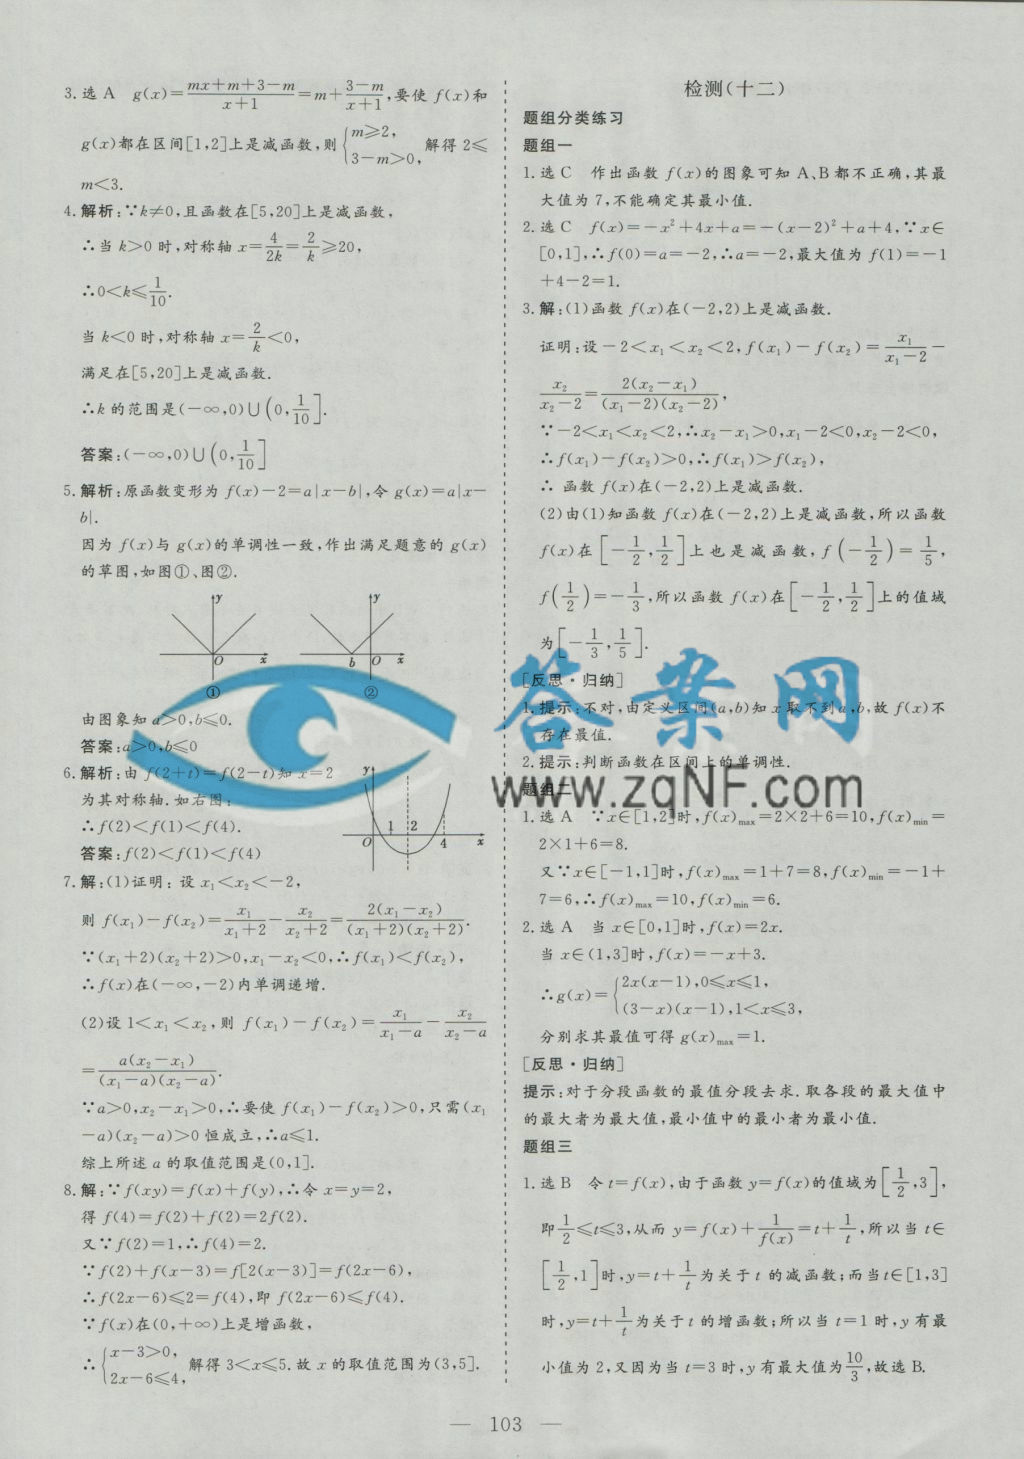 3. 选 A　g(x)=\frac{mx+m+3-m}{x+1}=m+\frac{3-m}{x+1},要使 f(x)和
g(x)都在区间[1,2]上是减函数,则{m≥2, 3-m>0, 解得 2≤
m<3.
4. 解析:∵k≠0,且函数在[5,20]上是减函数,
∴当 k>0 时,对称轴 x=\frac{4}{2k}=\frac{2}{k}≥20,
∴0<k≤\frac{1}{10}.
当 k<0 时,对称轴 x=\frac{2}{k}<0,
满足在[5,20]上是减函数.
∴k 的范围是(-∞,0)∪(0,\frac{1}{10}].
答案:(-∞,0)∪(0,\frac{1}{10}]
5. 解析:原函数变形为 f(x)-2=a|x-b|,令 g(x)=a|x-
b|.
因为 f(x)与 g(x)的单调性一致,作出满足题意的 g(x)
的草图,如图①、图②.
y
O
x
①
y
b
O
x
②
由图象知 a>0,b≤0.
答案:a>0,b≤0
6. 解析:由 f(2+t)=f(2-t)知 x=2
为其对称轴.如右图:
∴f(2)<f(1)<f(4).
答案:f(2)<f(1)<f(4)
y
O
1
2
4
x
7. 解:(1)证明:设 x₁<x₂<-2,
则 f(x₁)-f(x₂)=\frac{x₁}{x₁+2}-\frac{x₂}{x₂+2}=\frac{2(x₁-x₂)}{(x₁+2)(x₂+2)}.
∵(x₁+2)(x₂+2)>0,x₁-x₂<0,∴f(x₁)<f(x₂),
∴f(x)在(-∞,-2)内单调递增.
(2)设 1<x₁<x₂,则 f(x₁)-f(x₂)=\frac{x₁}{x₁-a}-\frac{x₂}{x₂-a}
=\frac{a(x₂-x₁)}{(x₁-a)(x₂-a)}.
∵a>0,x₂-x₁>0,∴要使 f(x₁)-f(x₂)>0,只需(x₁
-a)(x₂-a)>0 恒成立,∴a≤1.
综上所述 a 的取值范围是(0,1].
8. 解:∵f(xy)=f(x)+f(y),∴令 x=y=2,
得 f(4)=f(2)+f(2)=2f(2).
又∵f(2)=1,∴f(4)=2.
∵f(2)+f(x-3)=f[2(x-3)]=f(2x-6),
∴f(2x-6)≤2=f(4),即 f(2x-6)≤f(4).
∵f(x)在(0,+∞)上是增函数,
∴{x-3>0, 2x-6≤4, 解得 3<x≤5.故 x 的取值范围为(3,5].
检测(十二)
题组分类练习
题组一
1. 选 C　作出函数 f(x)的图象可知 A、B 都不正确,其最
大值为 7,不能确定其最小值.
2. 选 C　f(x)=-x²+4x+a=-(x-2)²+a+4,∵x∈
[0,1],∴f(0)=a=-2,∴a=-2,最大值为 f(1)=-1
+4-2=1.
3. 解:(1)函数 f(x)在(-2,2)上是减函数.
证明:设-2<x₁<x₂<2,f(x₁)-f(x₂)=\frac{x₁}{x₁-2}-
\frac{x₂}{x₂-2}=\frac{2(x₂-x₁)}{(x₁-2)(x₂-2)},
∵-2<x₁<x₂<2,∴x₂-x₁>0,x₁-2<0,x₂-2<0,
∴f(x₁)-f(x₂)>0,∴f(x₁)>f(x₂),
∴ 函数 f(x)在(-2,2)上是减函数.
(2)由(1)知函数 f(x)在(-2,2)上是减函数,所以函数
f(x)在[-\frac{1}{2},\frac{1}{2}]上也是减函数,f(-\frac{1}{2})=\frac{1}{5},
f(\frac{1}{2})=-\frac{1}{3},所以函数 f(x)在[-\frac{1}{2},\frac{1}{2}]上的值域
为[-\frac{1}{3},\frac{1}{5}].
[反思·归纳]
1. 提示:不对,由定义区间(a,b)知 x 取不到 a,b,故 f(x)不
存在最值.
2. 提示:判断函数在区间上的单调性.
题组二
1. 选 A　∵x∈[1,2]时,f(x)max=2×2+6=10,f(x)min=
2×1+6=8.
又∵x∈[-1,1]时,f(x)max=1+7=8,f(x)min=-1+
7=6,∴f(x)max=10,f(x)min=6.
2. 选 A　当 x∈[0,1]时,f(x)=2x.
当 x∈(1,3]时,f(x)=-x+3.
∴g(x)={2x(x-1),0≤x≤1, (3-x)(x-1),1<x≤3,
分别求其最值可得 g(x)max=1.
[反思·归纳]
提示:对于分段函数的最值分段去求.取各段的最大值中
的最大者为最大值,最小值中的最小者为最小值.
题组三
1. 选 B　令 t=f(x),由于函数 y=f(x)的值域为[\frac{1}{2},3],
即\frac{1}{2}≤t≤3,从而 y=f(x)+\frac{1}{f(x)}=t+\frac{1}{t},所以当 t∈
[\frac{1}{2},1]时,y=t+\frac{1}{t}为关于 t 的减函数;而当 t∈[1,3]
时,y=t+\frac{1}{t}为关于 t 的增函数;所以当 t=1 时,y 有最
小值为 2,又因为当 t=3 时,y 有最大值为\frac{10}{3},故选 B.
答案网
www.zqNF.com
— 103 —